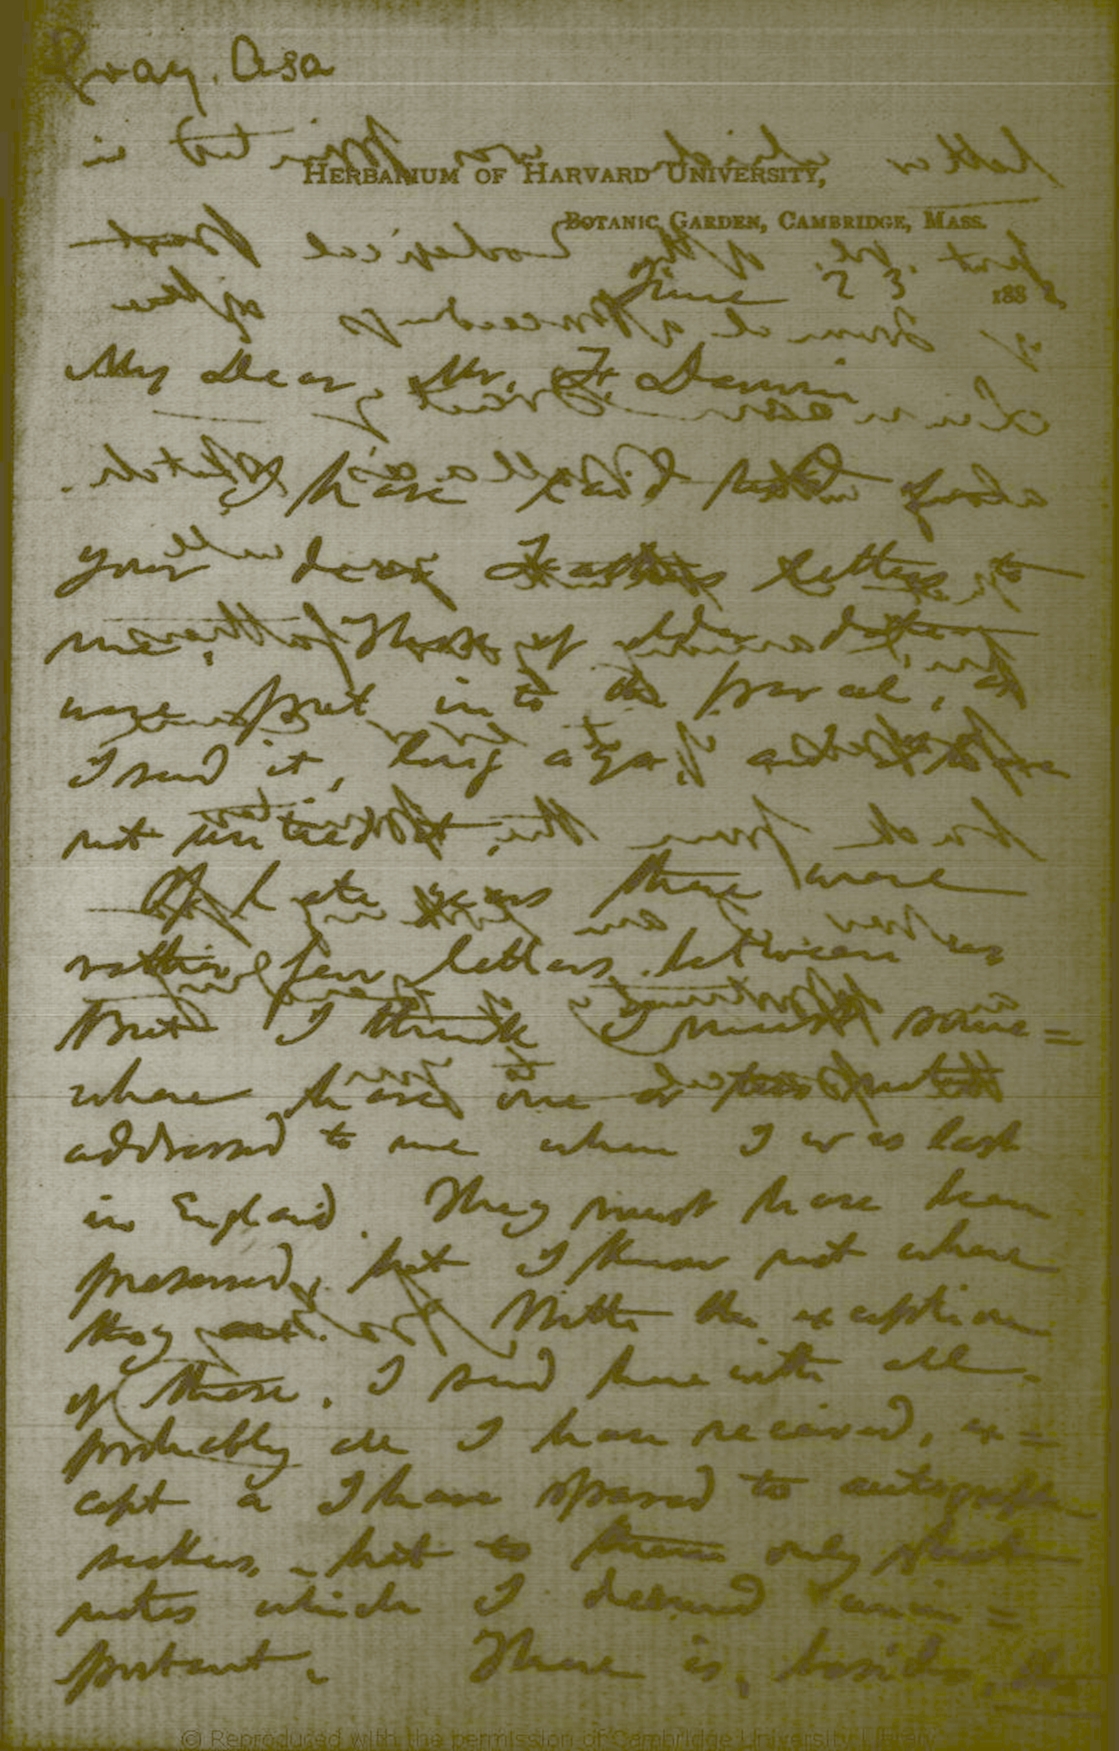 Gray, Asa
HERBARIUM OF HARVARD UNIVERSITY,
BOTANIC GARDEN, CAMBRIDGE, MASS.
June 23 188
My Dear Mr. F. Darwin
I have laid of
your dear Father's letters to
me. Those of older date
were put into the parcel, as
I send it, long ago, and
not untied it.
Of late years there were
rather few letters between us
But I think I must some=
where have one or two notes
addressed to me when I was last
in England. They must have been
preserved, but I know not where
they are. With the exception
of these, I send herewith all
probably all I have received, ex=
cept a I have spared to autograph
seekers, - but to them only short
notes which I deemed unim=
portant. There is, besides, the
© Reproduced with the permission of Cambridge University Library